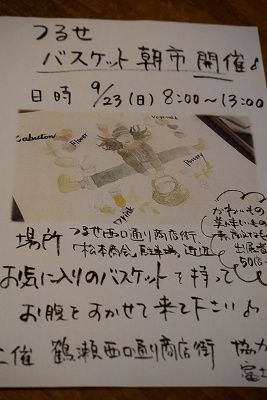 つるせ
バスケット朝市 開催♪
日時 9/23(日) 8:00〜13:00
Vegetable
Zabuton
Flower
Pastry
Drink
かわいいもの
美味しいもの
出店者
50店
場所 つるせ西口通り商店街
「松本商会」駐車場、近辺
お気に入りのバスケットを持って
お腹をすかせて来て下さい♪
主催 鶴瀬西口通り商店街 協力
富士